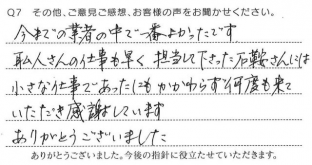 Q7 その他、ご意見ご感想、お客様の声をお聞かせください。
今までの業者の中で一番よかったです
職人さんの仕事も早く 担当して下さった石鞍さんには
小さな仕事であったにもかかわらず何度も来て
いただき感謝しています
ありがとうございました
ありがとうございました。今後の指針に役立たせていただきます。